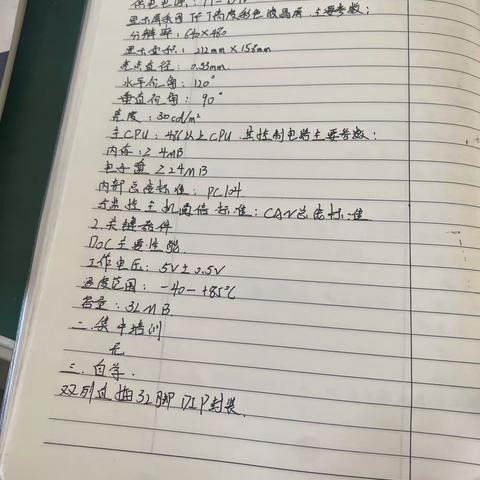 供电电源：
显示屏采用TFT高度彩色液晶屏，主要参数：
分辨率：640×480
显示面积：212mm×158mm
亮点直径：0.33mm
水平视角：120°
垂直视角：90°
亮度：30cd/m²
主CPU：486以上CPU，其控制电路主要参数：
内存：≥4MB
电子盘≥24MB
内部总线标准：PC104
与来控主机通信标准：CAN总线标准
2.关键器件
DOC主要性能
工作电压：5V±0.5V
温度范围：-40-+85℃
容量：32MB
二.集中培训
无
三.自学.
双列直插32脚DIP封装.